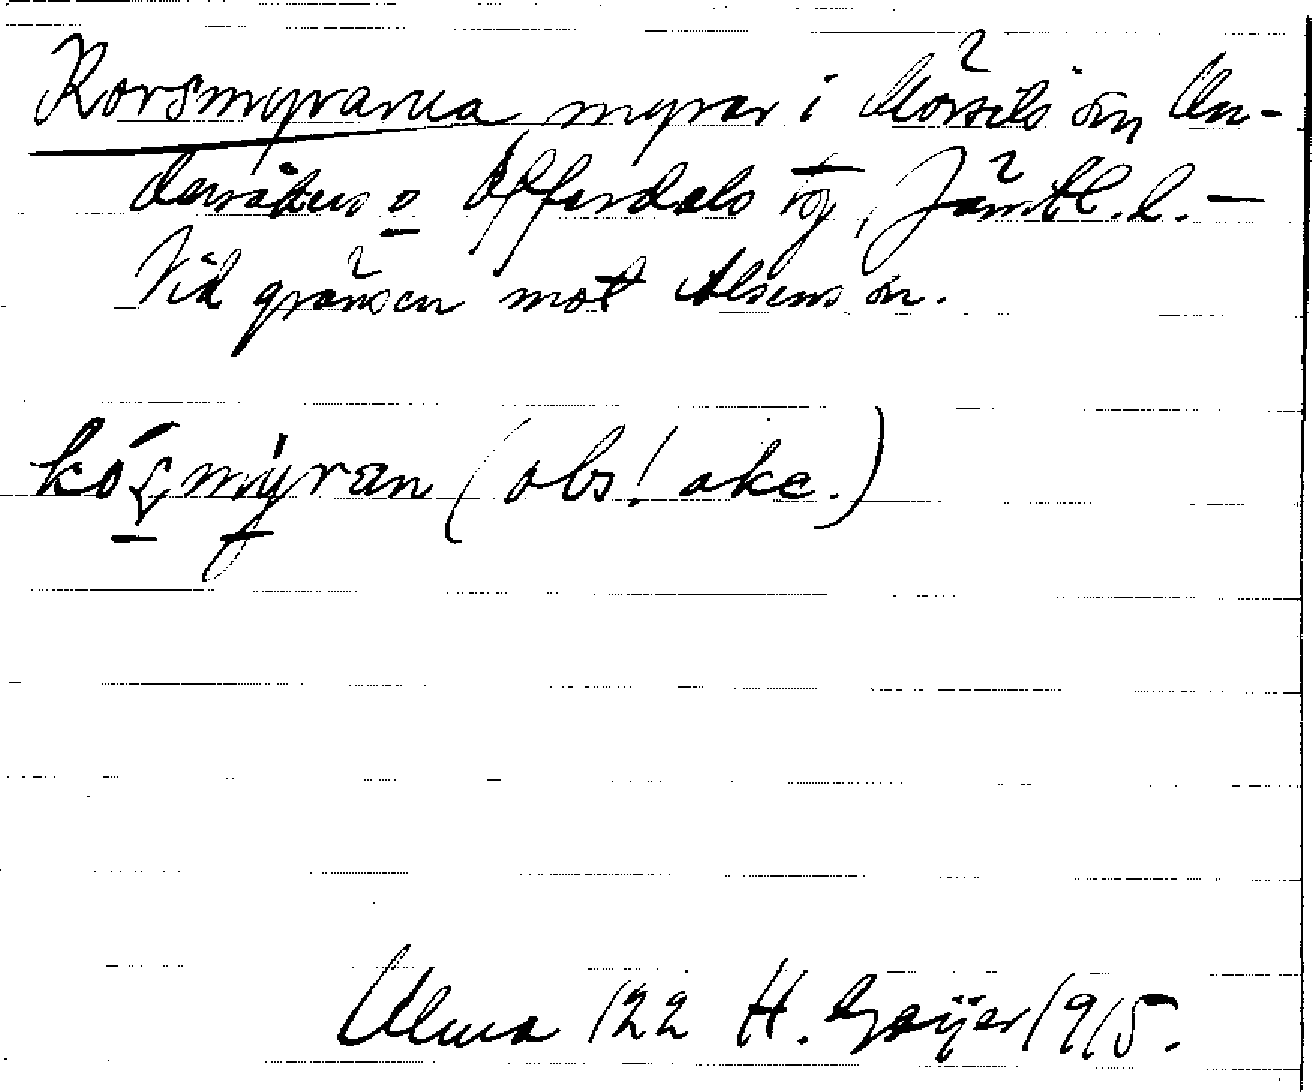 Korsmyrarna myrar i Mörsils sn, Un-
dersåkers o Offerdals tg, Jämtl. l. –
Vid gränsen mot Alsens sn.
myran (obs! akc.)
Ulma 122 H. Geijer 1915.